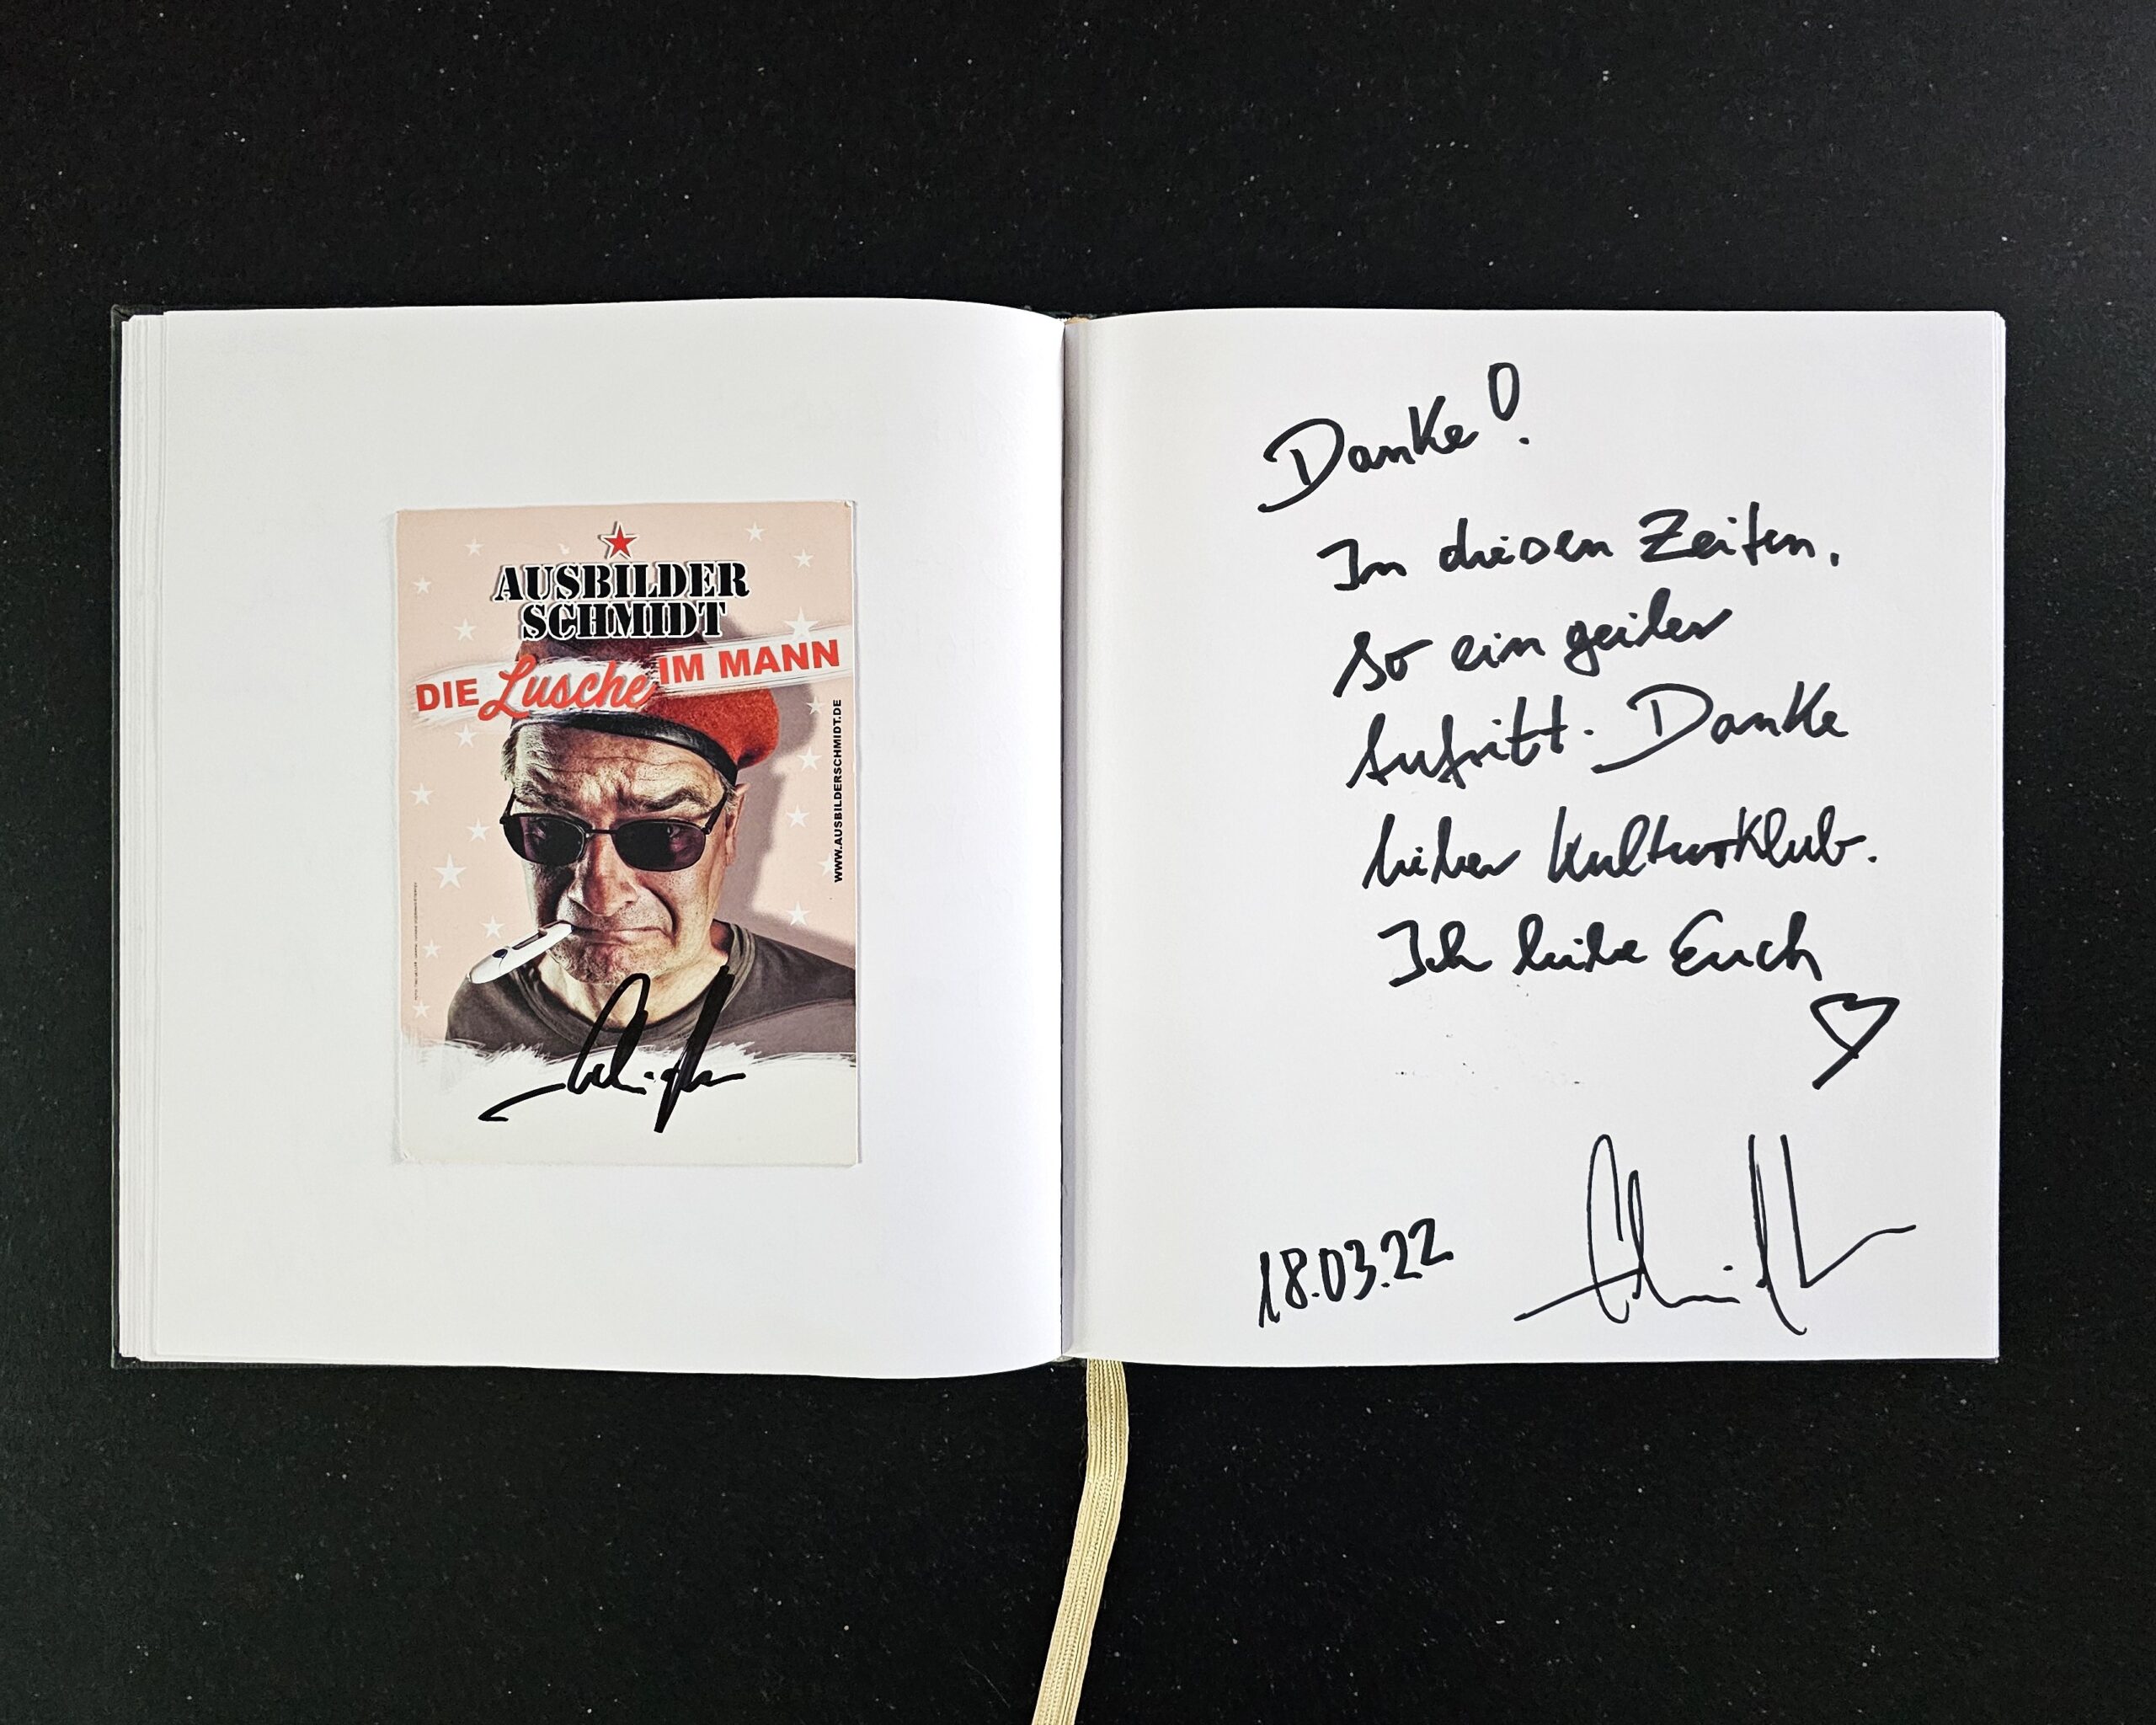 AUSBILDER
SCHMIDT
DIE Lusche IM MANN
WWW.AUSBILDERSCHMIDT.DE
Danke!
In diesen Zeiten.
So ein geiler
Auftritt. Danke
lieber Kulturklub.
Ich liebe Euch
18.03.22